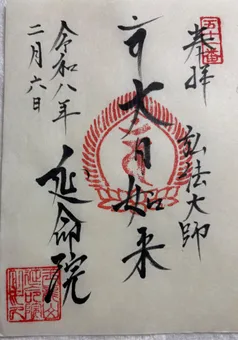 奉拝
弘法大師
大日如来
令和八年
二月六日
延命院